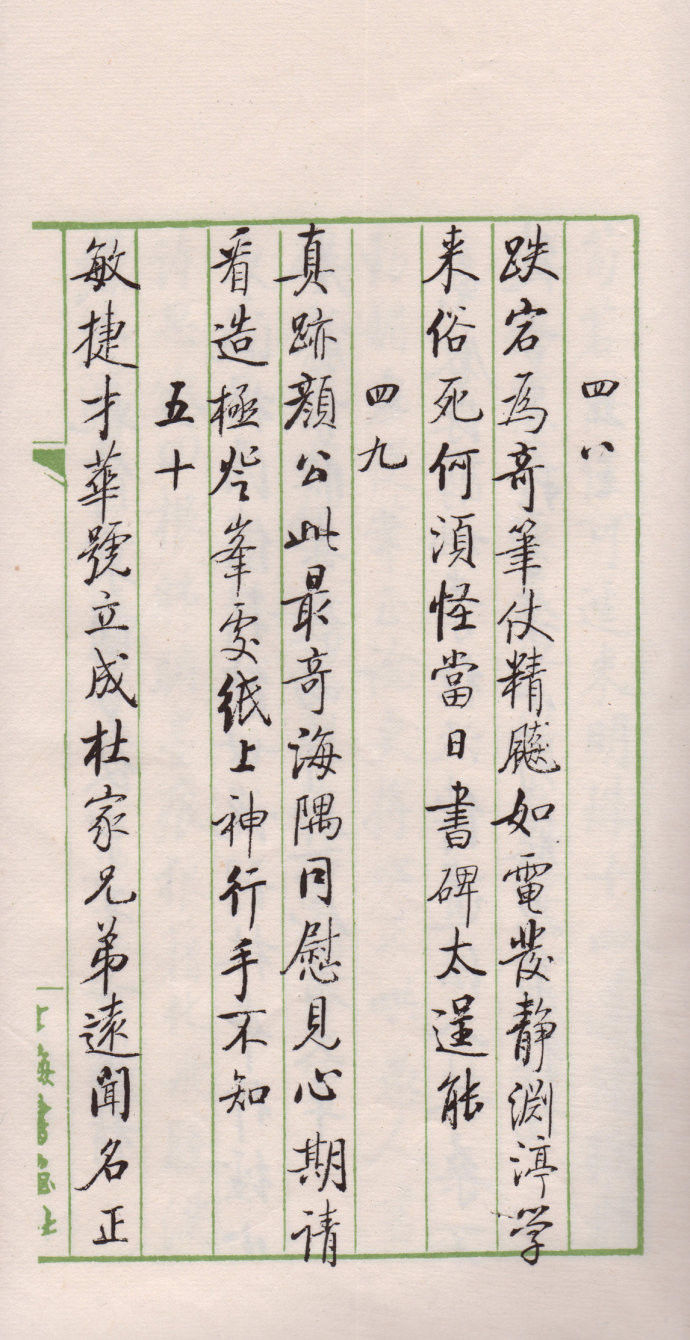 四八
跌宕為奇筆仗精飈如電發靜淵渟学
来俗死何須怪當日書碑太逞能
四九
真跡顏公此最奇海隅同慰見心期請
看造極登峯處紙上神行手不知
五十
敏捷才華號立成杜家兄弟遠聞名正
上海書画社